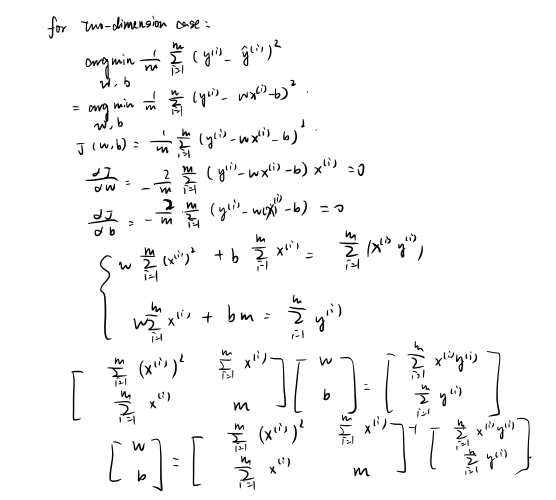 for two-dimension case:
argmin_{w,b} 1/m Σ_{i=1}^{m} (y^{(i)} - ŷ^{(i)})^2
= argmin_{w,b} 1/m Σ_{i=1}^{m} (y^{(i)} - wx^{(i)} - b)^2.
J(w,b) = 1/m Σ_{i=1}^{m} (y^{(i)} - wx^{(i)} - b)^2.
dJ/dw = -2/m Σ_{i=1}^{m} (y^{(i)} - wx^{(i)} - b) x^{(i)} = 0
dJ/db = -2/m Σ_{i=1}^{m} (y^{(i)} - wx^{(i)} - b) = 0
{ w Σ_{i=1}^{m} (x^{(i)})^2 + b Σ_{i=1}^{m} x^{(i)} = Σ_{i=1}^{m} (x^{(i)} y^{(i)})
w Σ_{i=1}^{m} x^{(i)} + bm = Σ_{i=1}^{m} y^{(i)}
[ Σ_{i=1}^{m} (x^{(i)})^2 Σ_{i=1}^{m} x^{(i)} ; Σ_{i=1}^{m} x^{(i)} m ] [ w ; b ] = [ Σ_{i=1}^{m} x^{(i)} y^{(i)} ; Σ_{i=1}^{m} y^{(i)} ]
[ w ; b ] = [ Σ_{i=1}^{m} (x^{(i)})^2 Σ_{i=1}^{m} x^{(i)} ; Σ_{i=1}^{m} x^{(i)} m ]^{-1} [ Σ_{i=1}^{m} x^{(i)} y^{(i)} ; Σ_{i=1}^{m} y^{(i)} ]